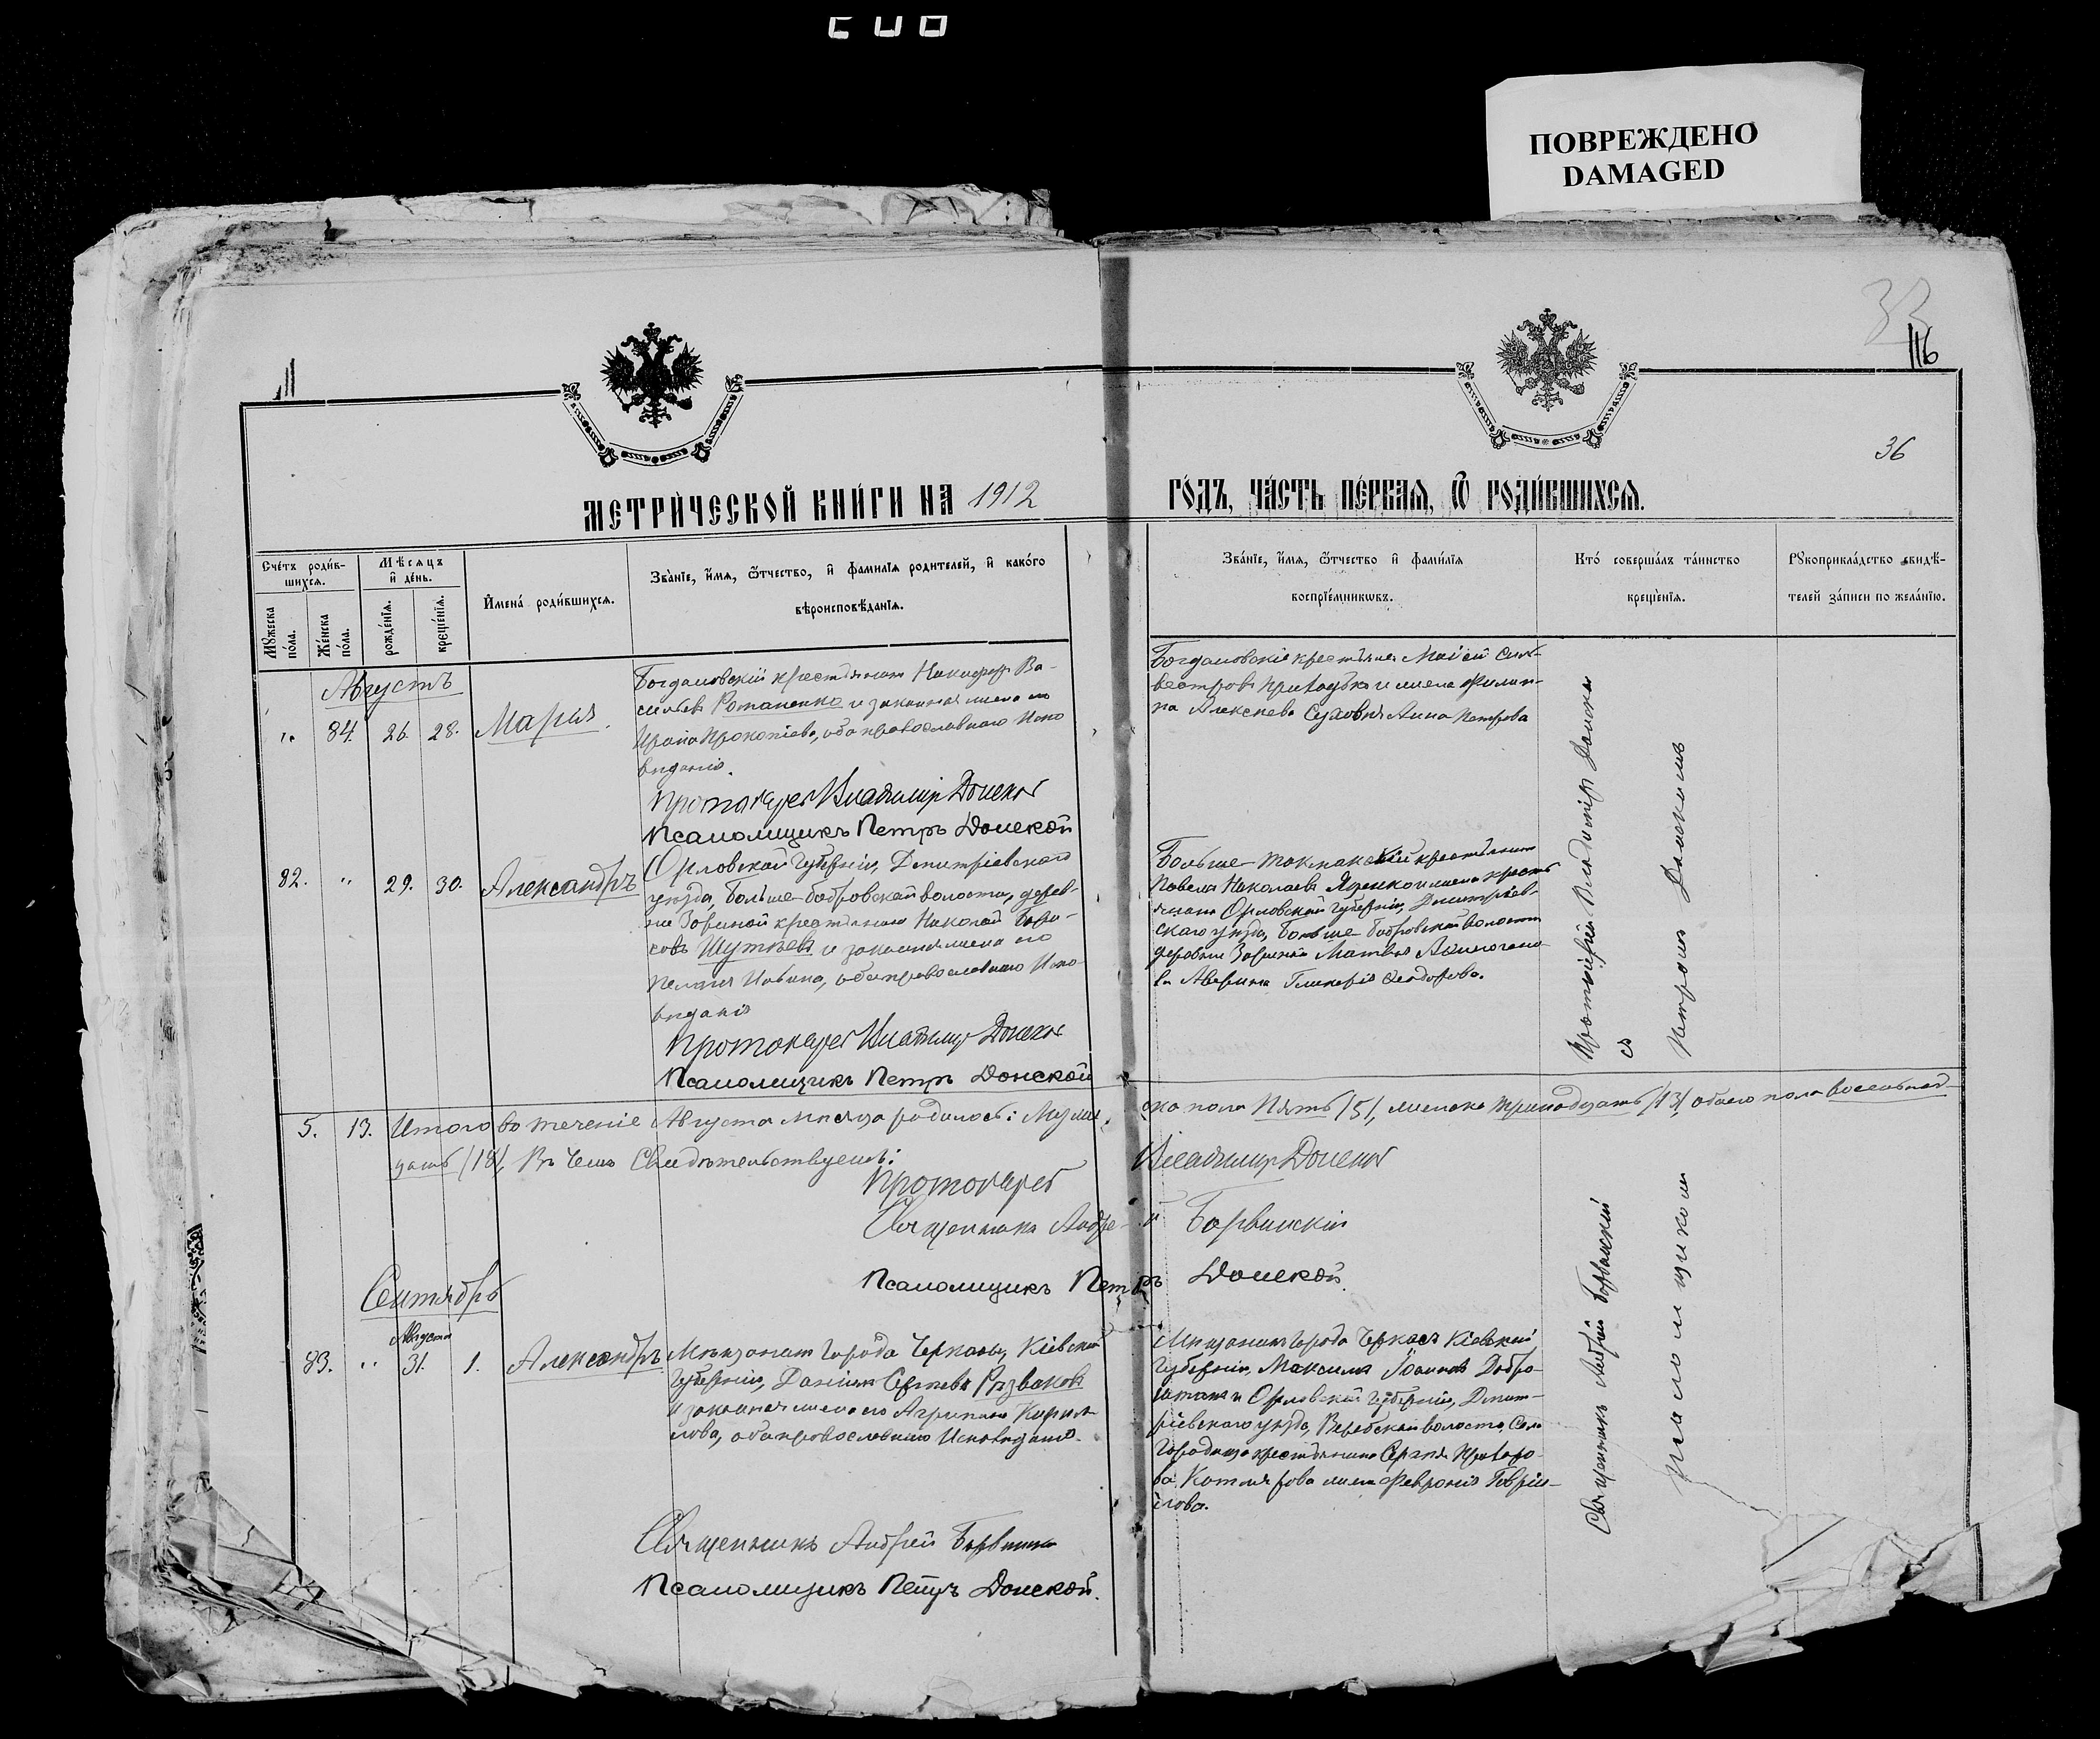 ПОВРЕЖДЕНО
DAMAGED
116
36
МЕТРИ́ЧЕСКОЙ КНИ́ГИ НА 1912
ГО́ДЪ, ЧА́СТЬ ПЕ́РВАЯ, Ѿ РОДИ́ВШИХСЯ.
Сче́тъ роди́в-
шихся.
Мꙋжеска по́ла.
Же́нска по́ла.
Мѣсяцъ
и де́нь.
рожде́нїя.
креще́нїя.
Имена́ роди́вшихся.
Зва́нїе, и́мя, ѿтчество, и фами́лїя родителей, и како́го
вѣроисповѣ́данїя.
Зва́нїе, и́мя, ѿтчество и фами́лїя
воспрїе́мникѡвъ.
Кто́ соверша́лъ та́инство
креще́нїя.
Рꙋкоприкла́дство свидѣ́-
телей за́писи по жела́нїю.
Августъ
" 84. 26. 28. Марія.
Богдановскій крестьянинъ Никифоръ Ва-
сильевъ Романенко и законная жена его
Ирина Прокопіева, оба православнаго Испо
вѣданія.
Протоіерей Владиміръ Донской
Псаломщикъ Петръ Донской
Богдановскіе крестьяне Моисей Силь-
вестровъ и жена Филип-
па Алексѣева Анна Петрова
Протоіерей Владиміръ Донской
съ
82. " 29. 30. Александръ
Орловской губерніи, Дмитріевскаго
уѣзда, Больше-бобровской волости, дерев-
ни Зориной крестьянинъ Николай Бори-
совъ Шутѣевъ и законная жена его
Пелагія Иовина, оба православнаго Испо-
вѣданія
Протоіерей Владиміръ Донской
Псаломщикъ Петръ Донской
Больше-Токмакскій крестьянинъ
Павелъ Николаевъ и жена кресть
янина Орловской губерніи, Дмитріев-
скаго уѣзда, Больше-бобровской волости
деревни Зориной Матвѣя
ва Аверина Гликерія Ѳеодорова.
Петромъ Донскимъ
5. 13. Итого въ теченіе Августа мѣсяца родилось: Мужес
ка пола Пять /5/, женска тринадцать /13/ обоего пола восемнад-
цать /18/, Въ чемъ Свидѣтельствуемъ:
Протоіерей Владиміръ Донской
Священникъ Андрей Борвинскій
Псаломщикъ Петръ Донской.
Сентябрь
Августа
83. " 31. 1. Александръ
Мѣщанинъ города Черкассъ, Кіевской
губерніи, Даніилъ Сергѣевъ
и законная жена его Агрипина Кирил
лова, оба православнаго Исповѣданія.
Священникъ Андрей Борвинскій
Псаломщикъ Петръ Донской.
Мѣщанинъ города Черкассъ Кіевской
губерніи, Максимъ Іоанновъ Добро-
и Орловской губерніи, Дмит-
ріевскаго уѣзда, волости, Села
Городища крестьянина Сергѣя
ва Котлярова жена Февронія Гаврі-
илова.
Священникъ Андрей Борвинскій
псаломщикомъ